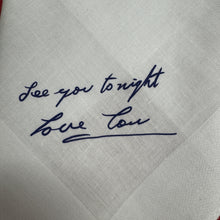 See you tonight
Love Lou